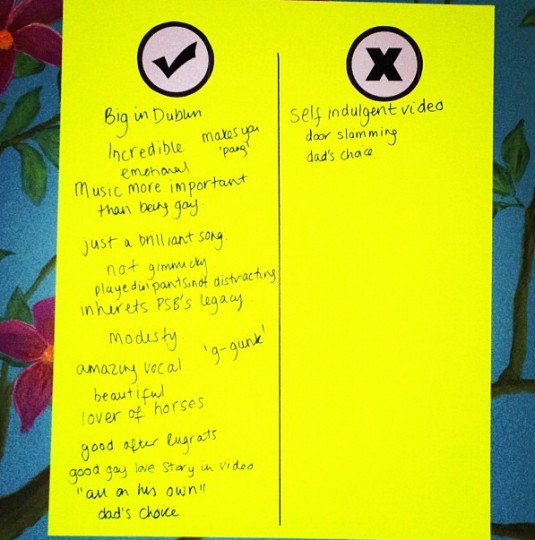 Big in Dublin
Incredible makes you
'pang'
emotional
Music more important
than being gay.
just a brilliant song.
not gimmicky
played in pants, not distracting
inherets PSB's legacy.
modesty.
'g-gunk'
amazing vocal
beautiful
lover of horses
good after Rugrats
good gay love story in video
"all on his own"
dad's choice
X
Self indulgent video
door slamming
dad's choice